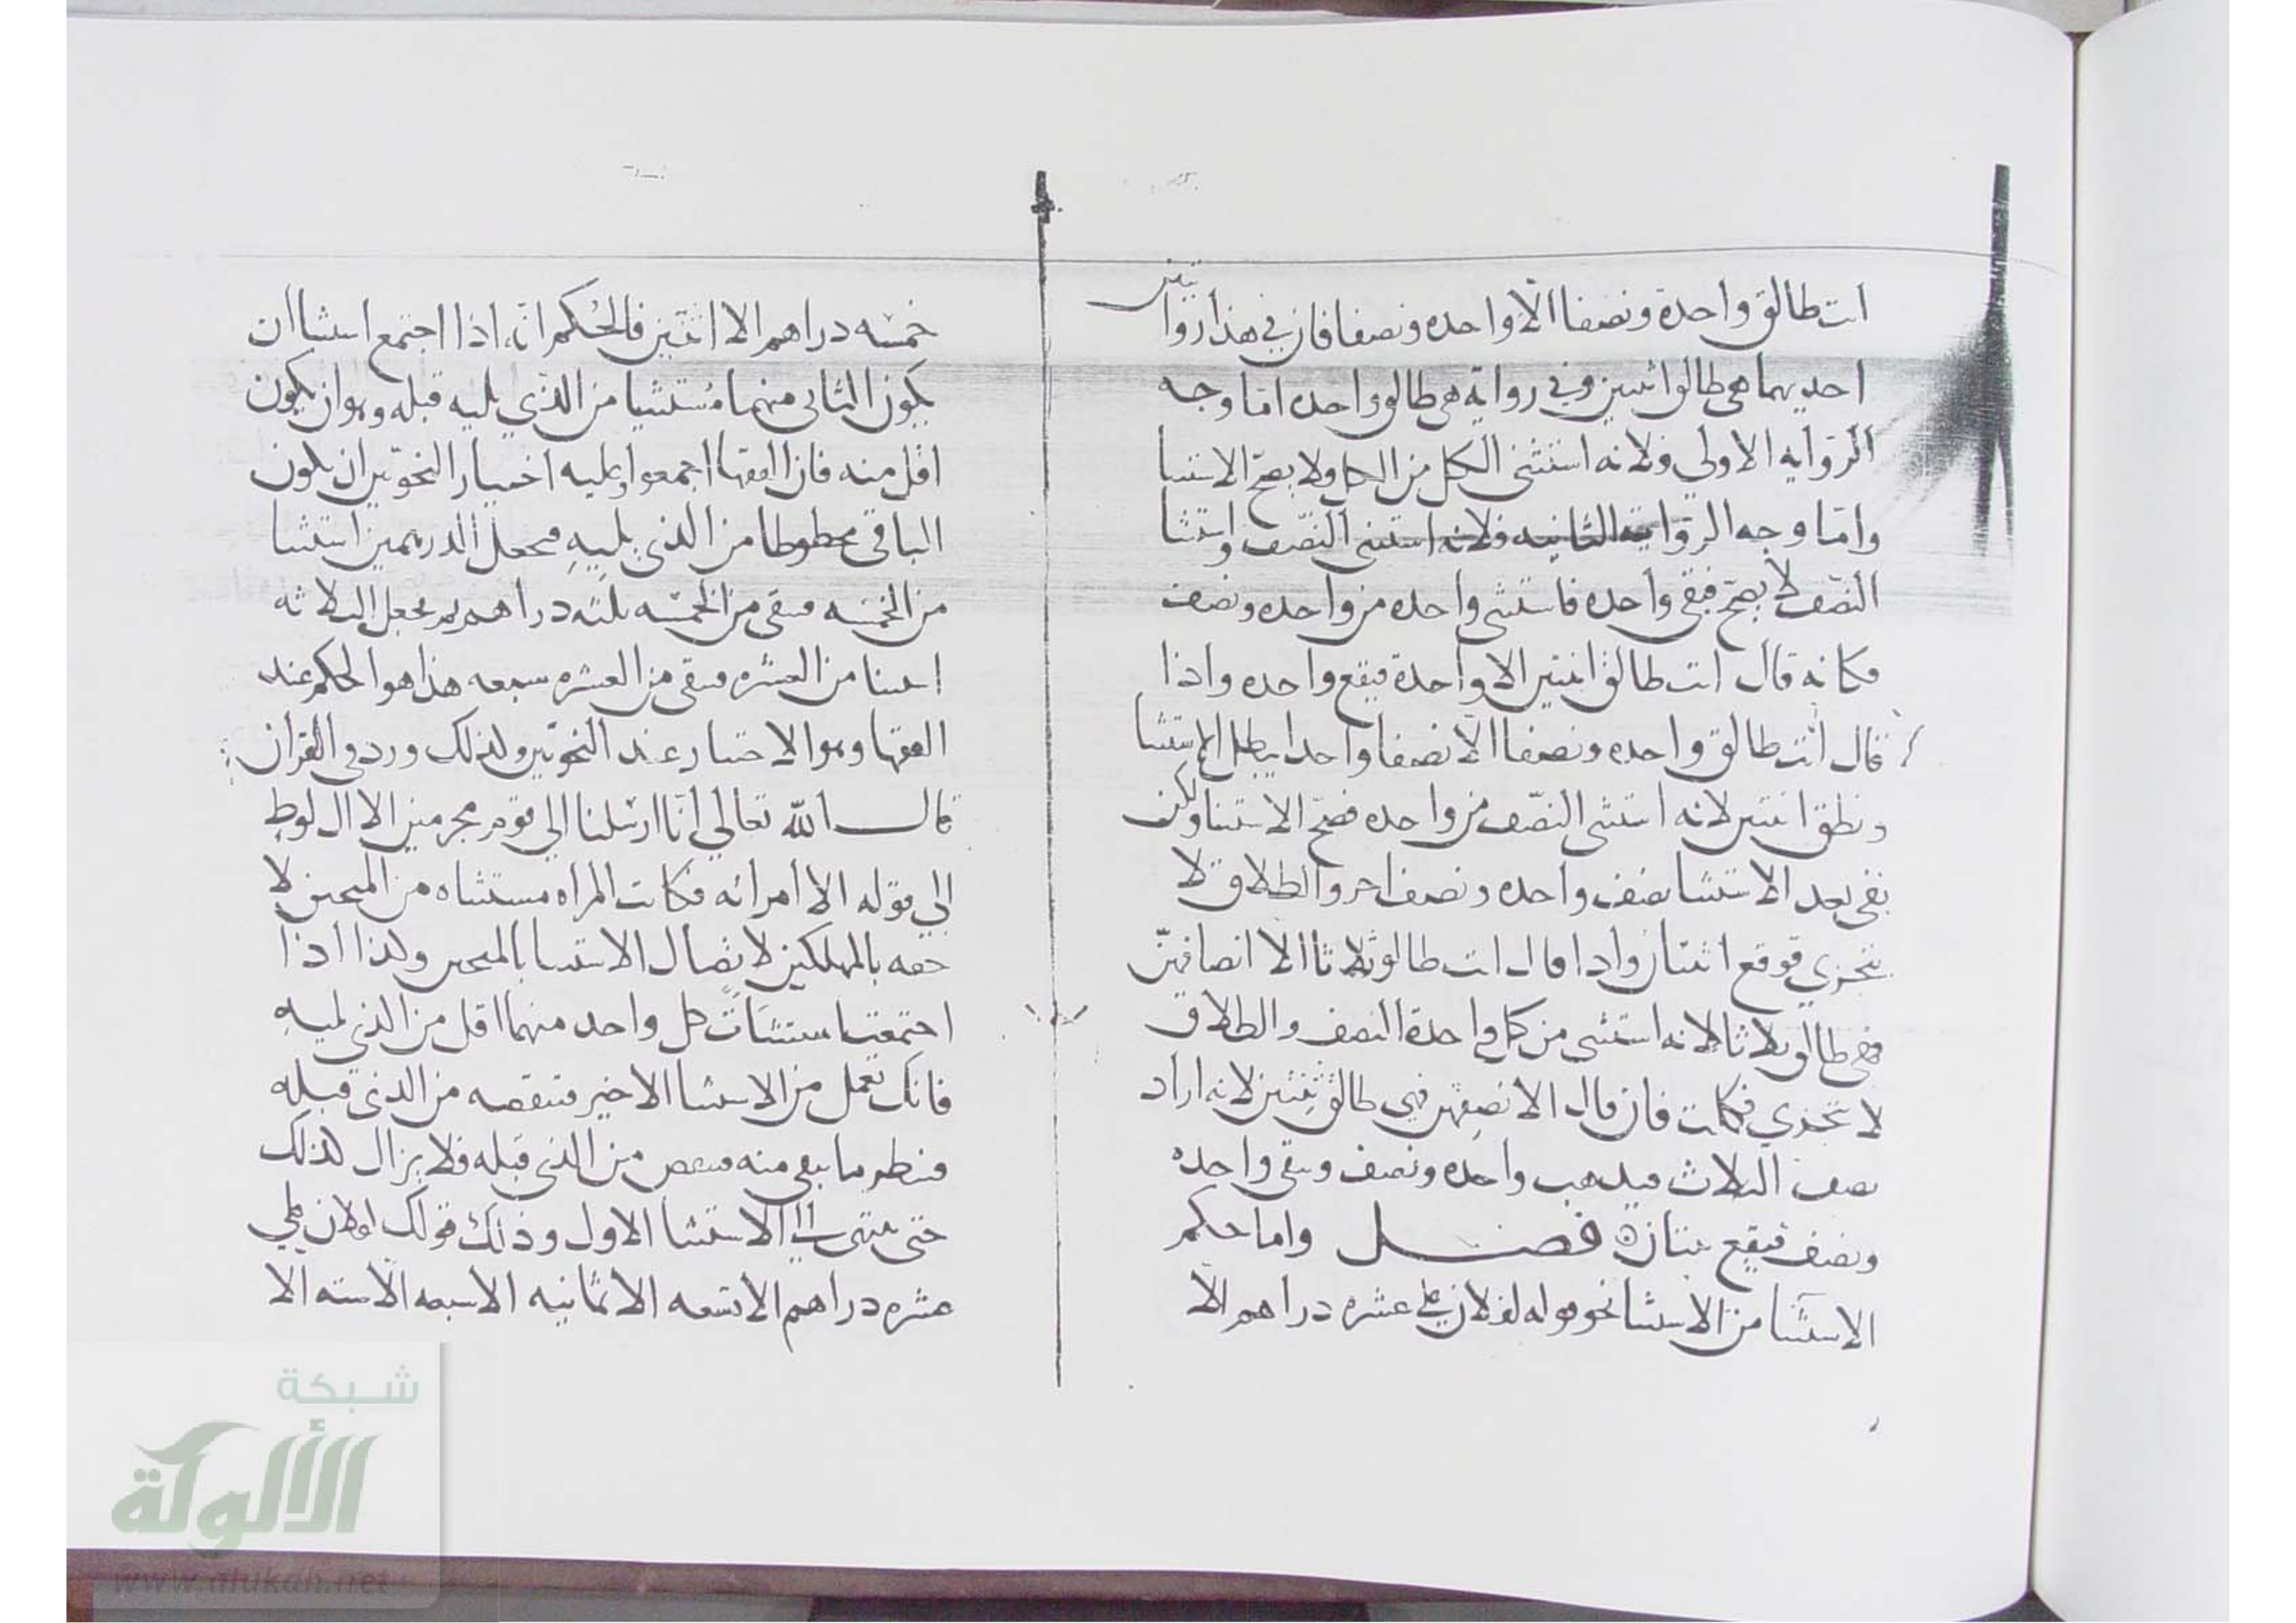 انت طالق واحدة ونصفا الا واحده ونصفا فان في هذا روايتين
احديهما هي طالق اثنتين وفي رواية هي طالق واحده اما وجه
الروايه الاولي فلانه استثنى الكل من الكل ولا يصح الاستثنا
واما وجه الرواية الثانيه فلانه استثنى النصف واستثنا
النصف لا يصح فبقي واحده فاستثنى واحده من واحده ونصف
فكانه قال انت طالق اثنتين الا واحدة فيقع واحده واذا
قال انت طالق واحده ونصفا الا نصفا واحدا يبطل الاستثنا
وتطلق اثنتين لانه استثنى النصف من واحده فصح الاستثنا ولكن
بقي بعد الاستثنا نصف واحده ونصف اخر والطلاق لا
يتجزي فوقع اثنتان واذا قال انت طالق ثلاثا الا انصافهن
فهي طالق ثلاثا لانه استثنى من كل واحدة النصف والطلاق
لا يتجزي فكملت فان قال الا نصفهن فهي طالق ثنتين لانه اراد
نصف الثلاث فيذهب واحده ونصف وبقي واحده
ونصف فيقع ثنتان ه فصل واما حكم
الاستثنا من الاستثنا نحو قوله لفلان علي عشره دراهم الا
خمسه دراهم الا اثنتين فالحكم انه اذا اجتمع استثناان
يكون الثاني منهما مستثنيا من الذي يليه قبله وهو ان يكون
اقل منه فان الفقها اجمعوا وعليه اختيار النحويين ان يكون
الباقي محطوطا من الذي يليه فجعل الدرهمين استثنا
من الخمسه فبقي من الخمسه ثلثه دراهم ثم تجعل الثلاثه
استثنا من العشره فبقي من العشره سبعه هذا هو الحكم عند
الفقها وهو الاختيار عند النحويين ولذلك ورد في القران
قال الله تعالي انا ارسلنا الي قوم مجرمين الا ال لوط
الي قوله الا امراته فكانت المراه مستثناه من المنجين لا
حقه بالمهلكين لاتصال الاستثنا بالمنجين ولذا اذا
اجتمعت استثنات كل واحد منهما اقل من الذي يليه
فانك تعمل من الاستثنا الاخير فتنقصه من الذي قبله
فتنظر ما بقي منه فتنقص من الذي قبله فلا يزال كذلك
حتى ينتهي الي الاستثنا الاول وذلك قولك لفلان علي
عشره دراهم الا تسعه الا ثمانيه الا سبعه الا سته الا
شبكة
الألوكة
www.alukah.net